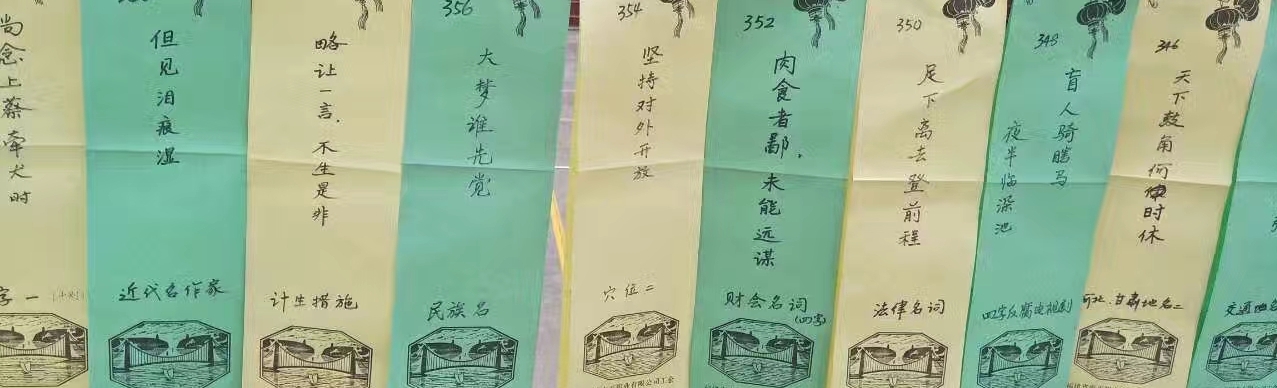 尚念上蔡牵犬时
字一
但见泪痕湿
近代名作家
略让一言,不生是非
计生措施
356
大梦谁先觉
民族名
354
坚持对外开放
穴位二
352
肉食者鄙,未能远谋
财会名词
(四字)
350
足下离去登前程
法律名词
348
盲人骑瞎马
夜半临深池
346
天下鼓角何时休
河北、甘肃地名二